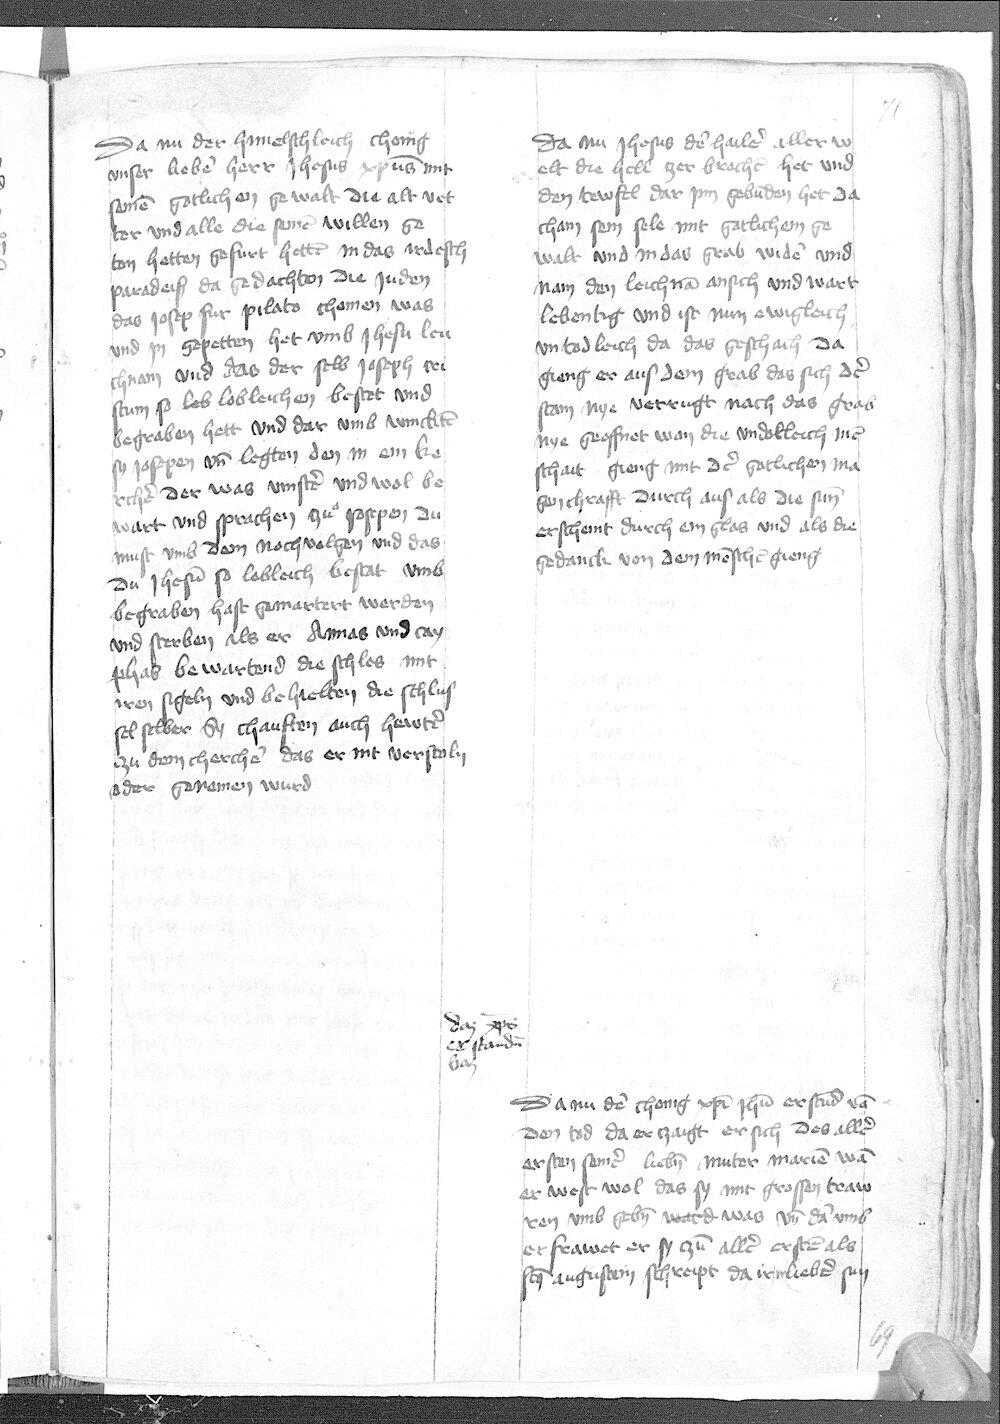 71
Da nu der himelschleich chönig
vnser lieber herr Jhesus xp̄us mit
seinē gotlichen gewalt die alt vet
ter vnd alle die seinē willen ge
ton hetten gefurt hettē in das irdesch
paradeiß da gedachten die juden
das josep fur pilato chomen was
und in gepetten het vmb Jhesu lei
chnam vnd das der selb Joseph cri
stum so lobleichen bestet vnd
begraben hett vnd dar vmb
sy josepen vn̄ legten den in ein ke
rcher der was vinster vnd wol be
wart vnd sprachen zu josepen du
must vmb dem nochuolgen vnd das
du Jhesū so lobleich bestat vmb
begraben hast gemartert werden
vnd sterben als er Annas vnd cay
phas bewartend die schlos mit
iren sigeln vnd behielten die schlüs
sel selber Sy chauften auch hewtter
zu dem cherchē das er nit verstoln
oder genomen wurd
Da nu Jhesus der hailer aller w
elt die hell zer brochē het vnd
den tewfel dar jnn gebūden het da
cham sein sele mit gotlichem ge
walt vnd in das grab wider vnd
nam den leichnā an sich vnd wart
lebentig vnd ist nun ewigleich
vntodleich da das geschach Da
gieng er aus dem grab das sich der
stain nye verrugt noch das grab
nye geoffnet wan die vndotleich mē
schait gieng mit der gotlichen ma
genchrafft durch aus als die sun̄
erscheint durch ein glas vnd als die
gedanck von dem mēschē gieng
daz xp̄s
erstandn̄
waz
Da nu der chonig xp̄i Jhū erstūd vā
den tod da er zaigt er sich des aller
ersten seiner liebn̄ muter mariē wā
er west wol das sy mit grossen traw
ren vmb gebn̄ ward was vn̄ dar vmb
erfrawet er sy zū aller erstē als
sct̄s augustein schreipt da ir lieber sun
69